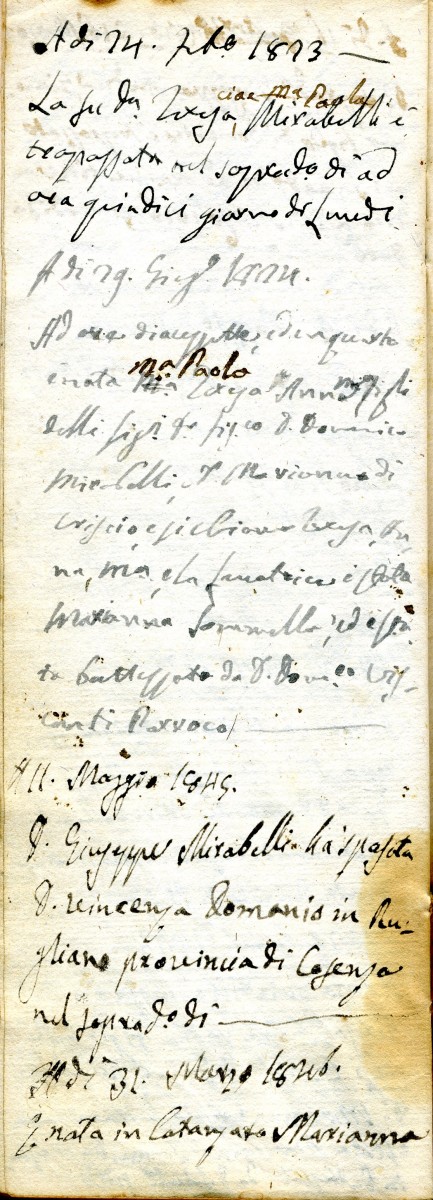 A di 24. 7bo. 1823
cioe Ma. Paola
La su da. Mirabelli è
trapassata nel sopradō. di ad
ora quindici giorno di Lunedi
A di 29. Giugo. 1824.
Ad ore diecessette, ed un quarto
Ma. Paola
è nata Anna figli
delli Sigri. Fisico D. Domenico
Mirabelli, Da. Marianna di
Criscio e si chiama An
na, Ma, e la Levatrice è stata
Marianna ed è sta
ta battezzata da D. Domeco Vis-
canti Parroco
A 11. Maggio 1845.
D. Giuseppe Mirabelli há sposata
D. Vincenza Domanio in Ru-
gliano provincia di Cosenza
nel soprado. di
A di 31. Marzo 1846.
È nata in Catanzaro Marianna